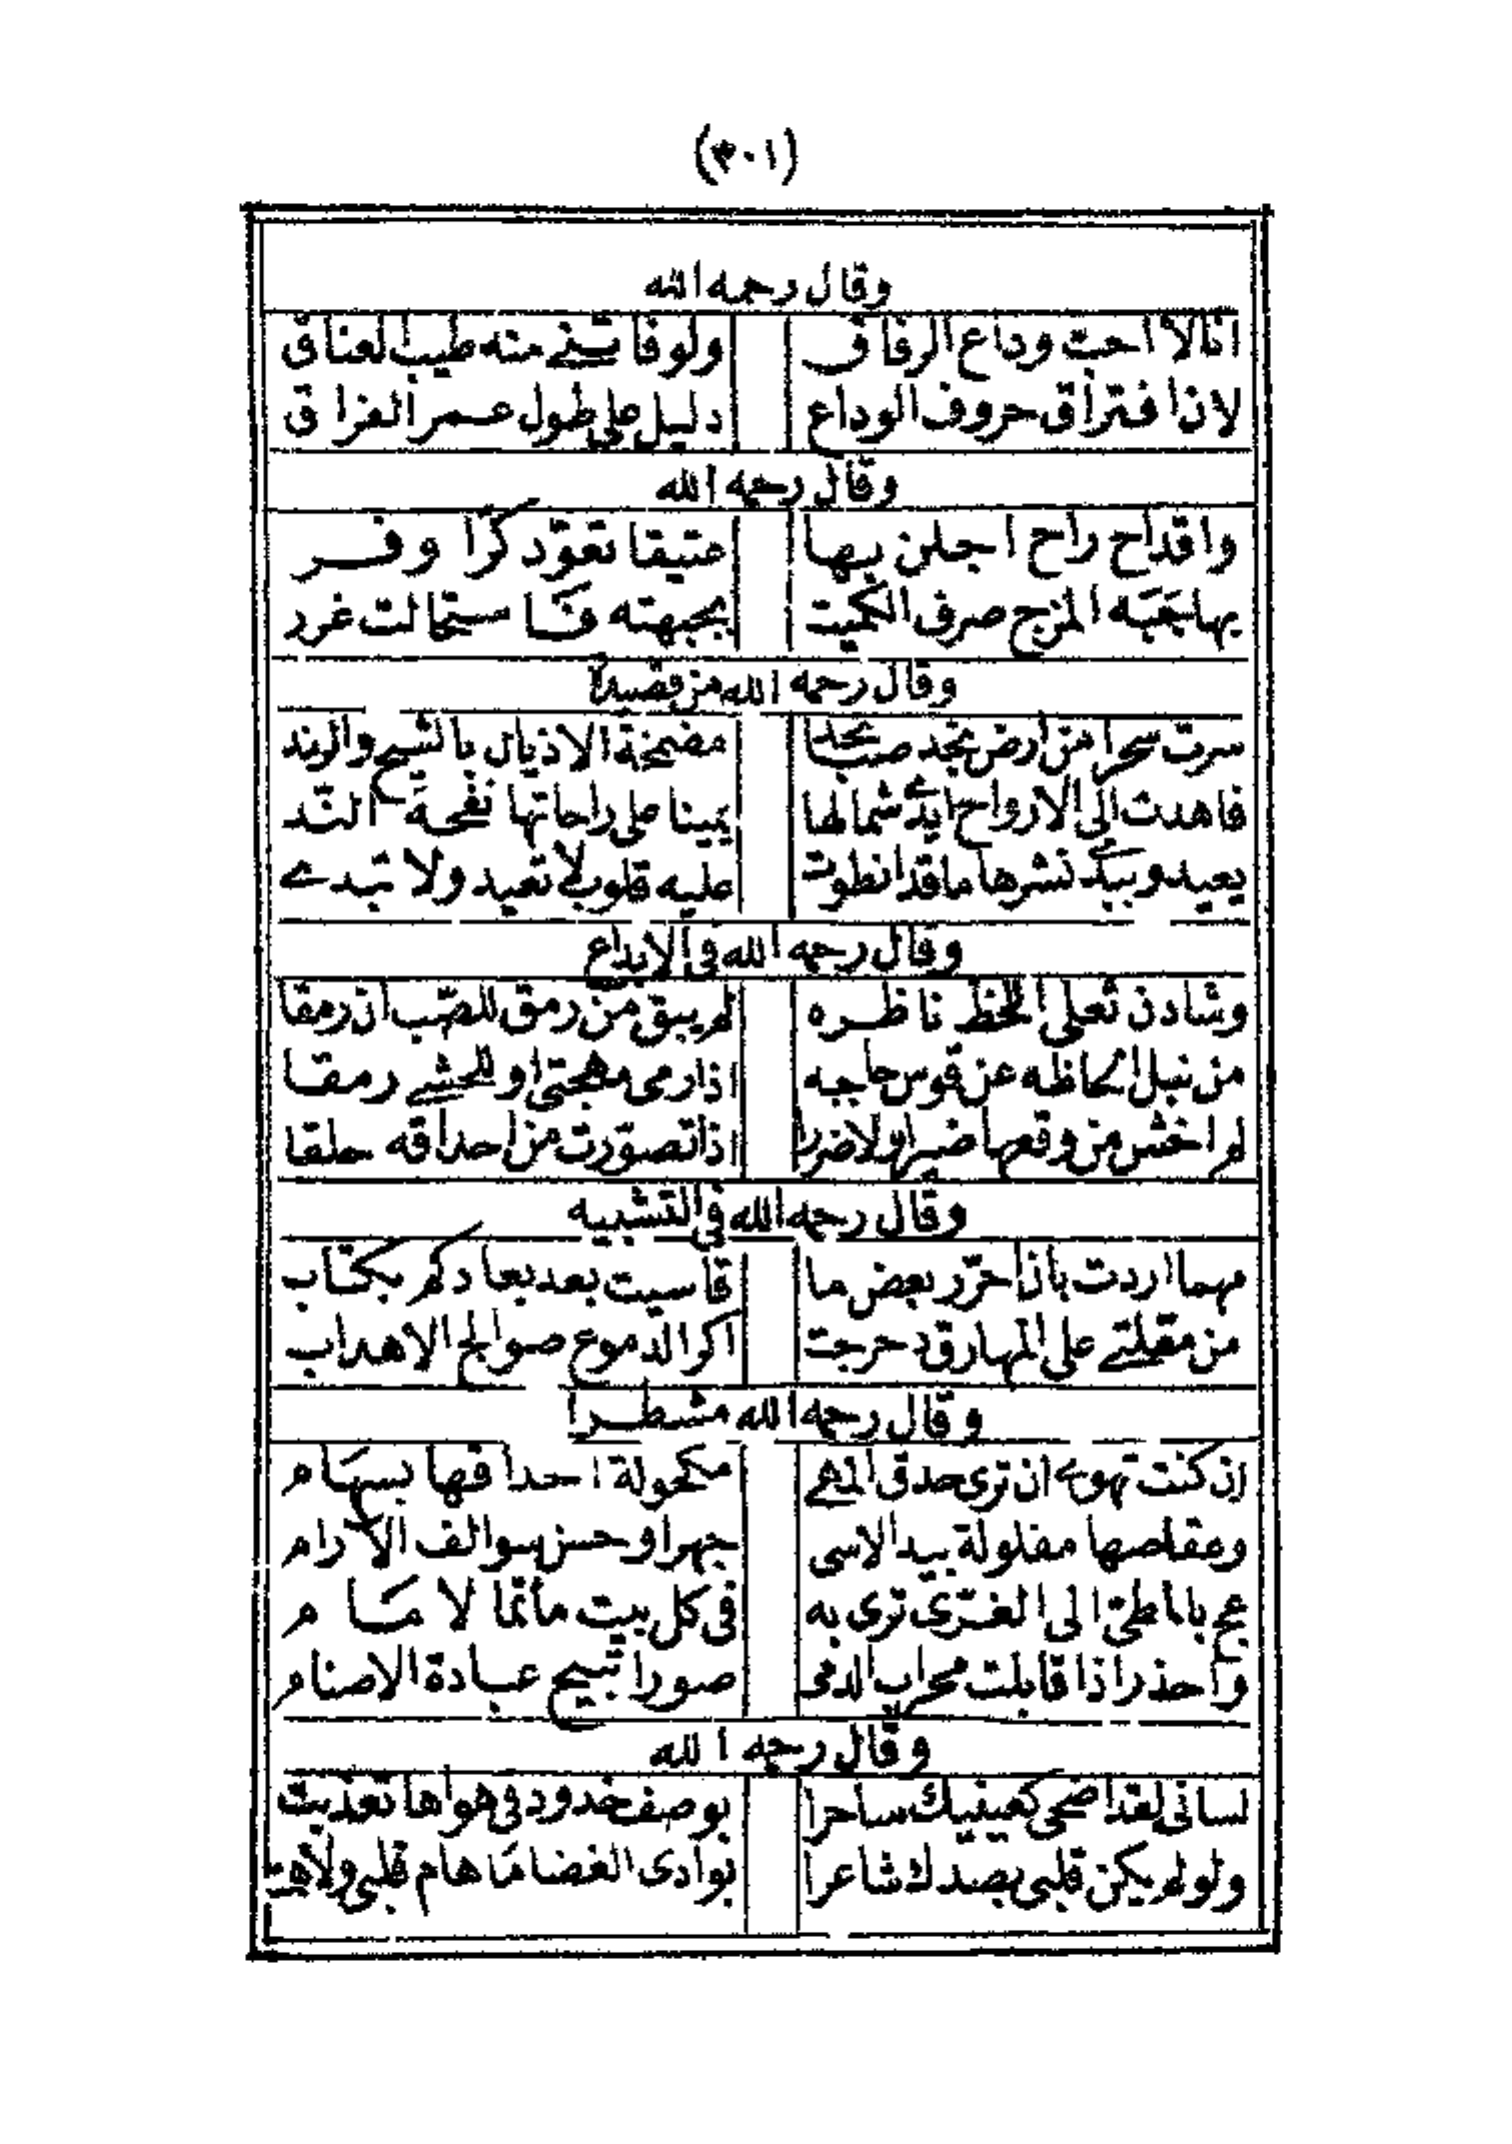 (٣٠١)
وقال رحمه الله
انالا احب وداع الرفاق ولو فاتنى منه طيب العناق
لان افتراق حروف الوداع دليل على طول عمر الفراق
وقال رحمه الله
واقداح راح اجلن بها عتيقا تعوّد كرّا وفر
بها جبَه المزج صرف الكميت بجبهته فاستحالت غرر
وقال رحمه الله من قصيدة
سرت سحرا من ارض نجد صبا نجد مضمخة الاذيال بالشيح والرند
فاهدت الى الارواح ايدى شمالها يمينا على راحاتها نفحة النّد
يعيد ويبدى نشرها ما قد انطوت عليه قلوب لا تعيد ولا تبدے
وقال رحمه الله فى الابداع
وشادن ثعلى اللحظ ناظره لم يبق من رمق للصّب ان رمقا
من نبل الحاظه عن قوس حاجبه اذا رمى مهجتى او للحشے رمقا
لم اخش من وقعها ضيرا ولا ضررا اذا تصوّرت من احداقه حلقا
وقال رحمه الله فى التشبيه
مهما اردت بان احرّر بعض ما قاسيت بعد بعادكم بكتاب
من مقلتے على المهارق دحرجت اكر الدموع صوالج الاهداب
وقال رحمه الله مشطرا
ان كنت تهوے ان ترى حدق المهے مكحولة احداقها بسهام
ومقاصها مغلولة بيد الاسى جهرا وحسن سوالف الآرام
عج بالمطىّ الى الغرّى ترى به فى كل بيت مأتما لامام
واحذر اذا قابلت محراب الدمى صورا تبيح عبادة الاصنام
وقال رحمه الله
لسانى لقد اضحى كعينيك ساحرا بوصف خدود فى هواها تعذبت
ولو لم يكن قلبى بصدك شاعرا بوادى الغضا ما هام قلبى